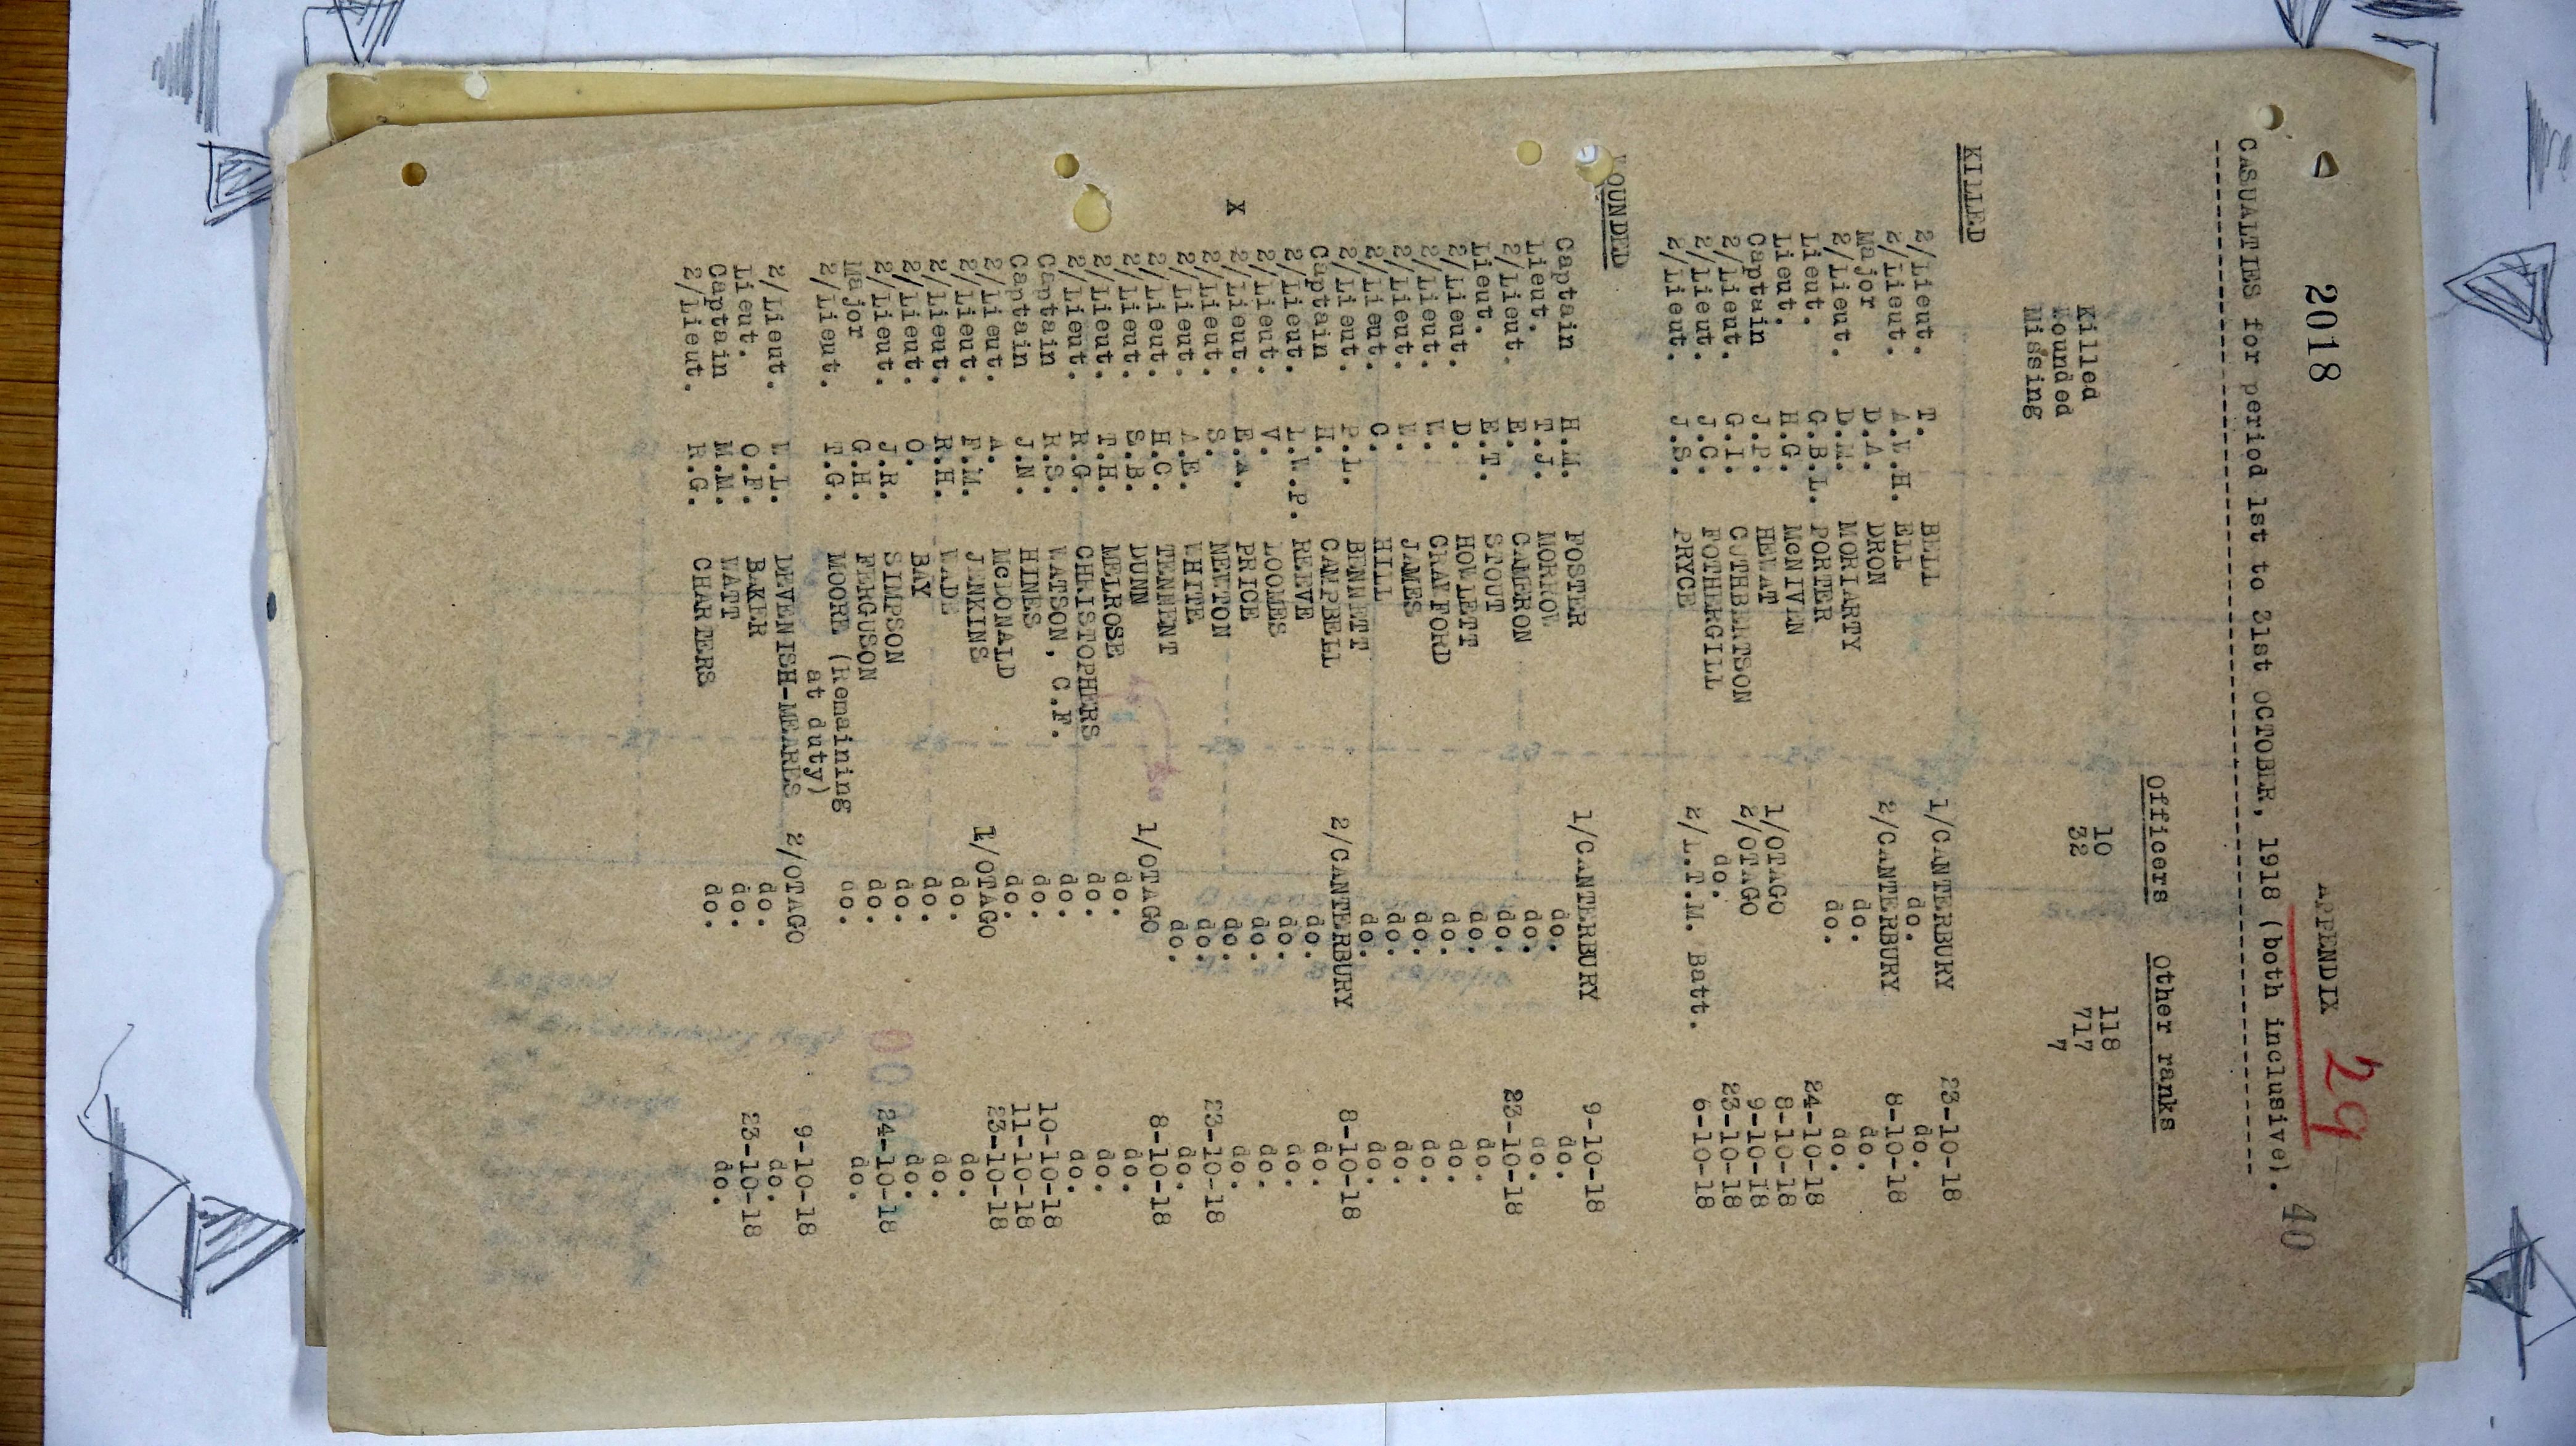 2018
APPENDIX 29
40
CASUALTIES for period 1st to 31st OCTOBER, 1918 (both inclusive).
Officers Other ranks
Killed 10 118
Wounded 32 717
Missing 7
KILLED
2/Lieut. T. BELL 1/CANTERBURY 23-10-18
2/Lieut. A.W.H. ELL do. do.
Major D.A. DRON 2/CANTERBURY 8-10-18
2/Lieut. D.M. MORIARTY do. do.
Lieut. G.B.L. PORTER do. do.
Lieut. H.G. McNIVEN 24-10-18
Captain J.P. HEWAT 1/OTAGO 8-10-18
2/Lieut. G.I. CUTHBERTSON 2/OTAGO 9-10-18
2/Lieut. J.C. FOTHERGILL do. 23-10-18
2/Lieut. J.S. PRYCE 2/L.T.M. Batt. 6-10-18
WOUNDED
Captain H.M. FOSTER 1/CANTERBURY 9-10-18
Lieut. T.J. MORROW do. do.
2/Lieut. E. CAMERON do. do.
Lieut. E.T. STOUT do. 23-10-18
2/Lieut. D. HOWLETT do. do.
2/Lieut. W. CRAWFORD do. do.
2/Lieut. W. JAMES do. do.
2/Lieut. C. HILL do. do.
2/Lieut. P.L. BENNETT do. do.
Captain H. CAMPBELL 2/CANTERBURY 8-10-18
2/Lieut. L.W.P. REEVE do. do.
2/Lieut. V. LOOMES do. do.
X 2/Lieut. E.A. PRICE do. do.
2/Lieut. S. NETTON do. do.
2/Lieut. A.E. WHITE do. 23-10-18
2/Lieut. H.C. TENNENT do. do.
2/Lieut. S.B. DUNN 1/OTAGO 8-10-18
2/Lieut. T.H. MELROSE do. do.
2/Lieut. R.G. CHRISTOPHERS do. do.
Captain R.S. WATSON, C.F. do. do.
Captain J.N. HINES do. 10-10-18
2/Lieut. A. McDONALD do. 11-10-18
2/Lieut. F.M. JENKINS 1/OTAGO 23-10-18
2/Lieut. R.H. WADE do. do.
2/Lieut. O. BAY do. do.
2/Lieut. J.R. SIMPSON do. do.
Major G.H. FERGUSON do. 24-10-18
2/Lieut. T.G. MOORE (Remaining do. do.
at duty)
2/Lieut. W.L. DEVENISH-MEARES 2/OTAGO 9-10-18
Lieut. O.F. BAKER do. do.
Captain M.N. WATT do. 23-10-18
2/Lieut. R.G. CHARTERS do. do.